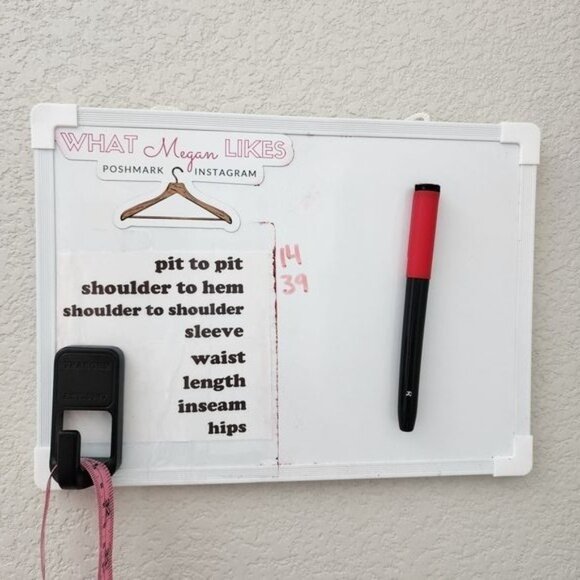 WHAT Megan LIKES
POSHMARK INSTAGRAM
pit to pit 14
shoulder to hem 39
shoulder to shoulder
sleeve
waist
length
inseam
hips